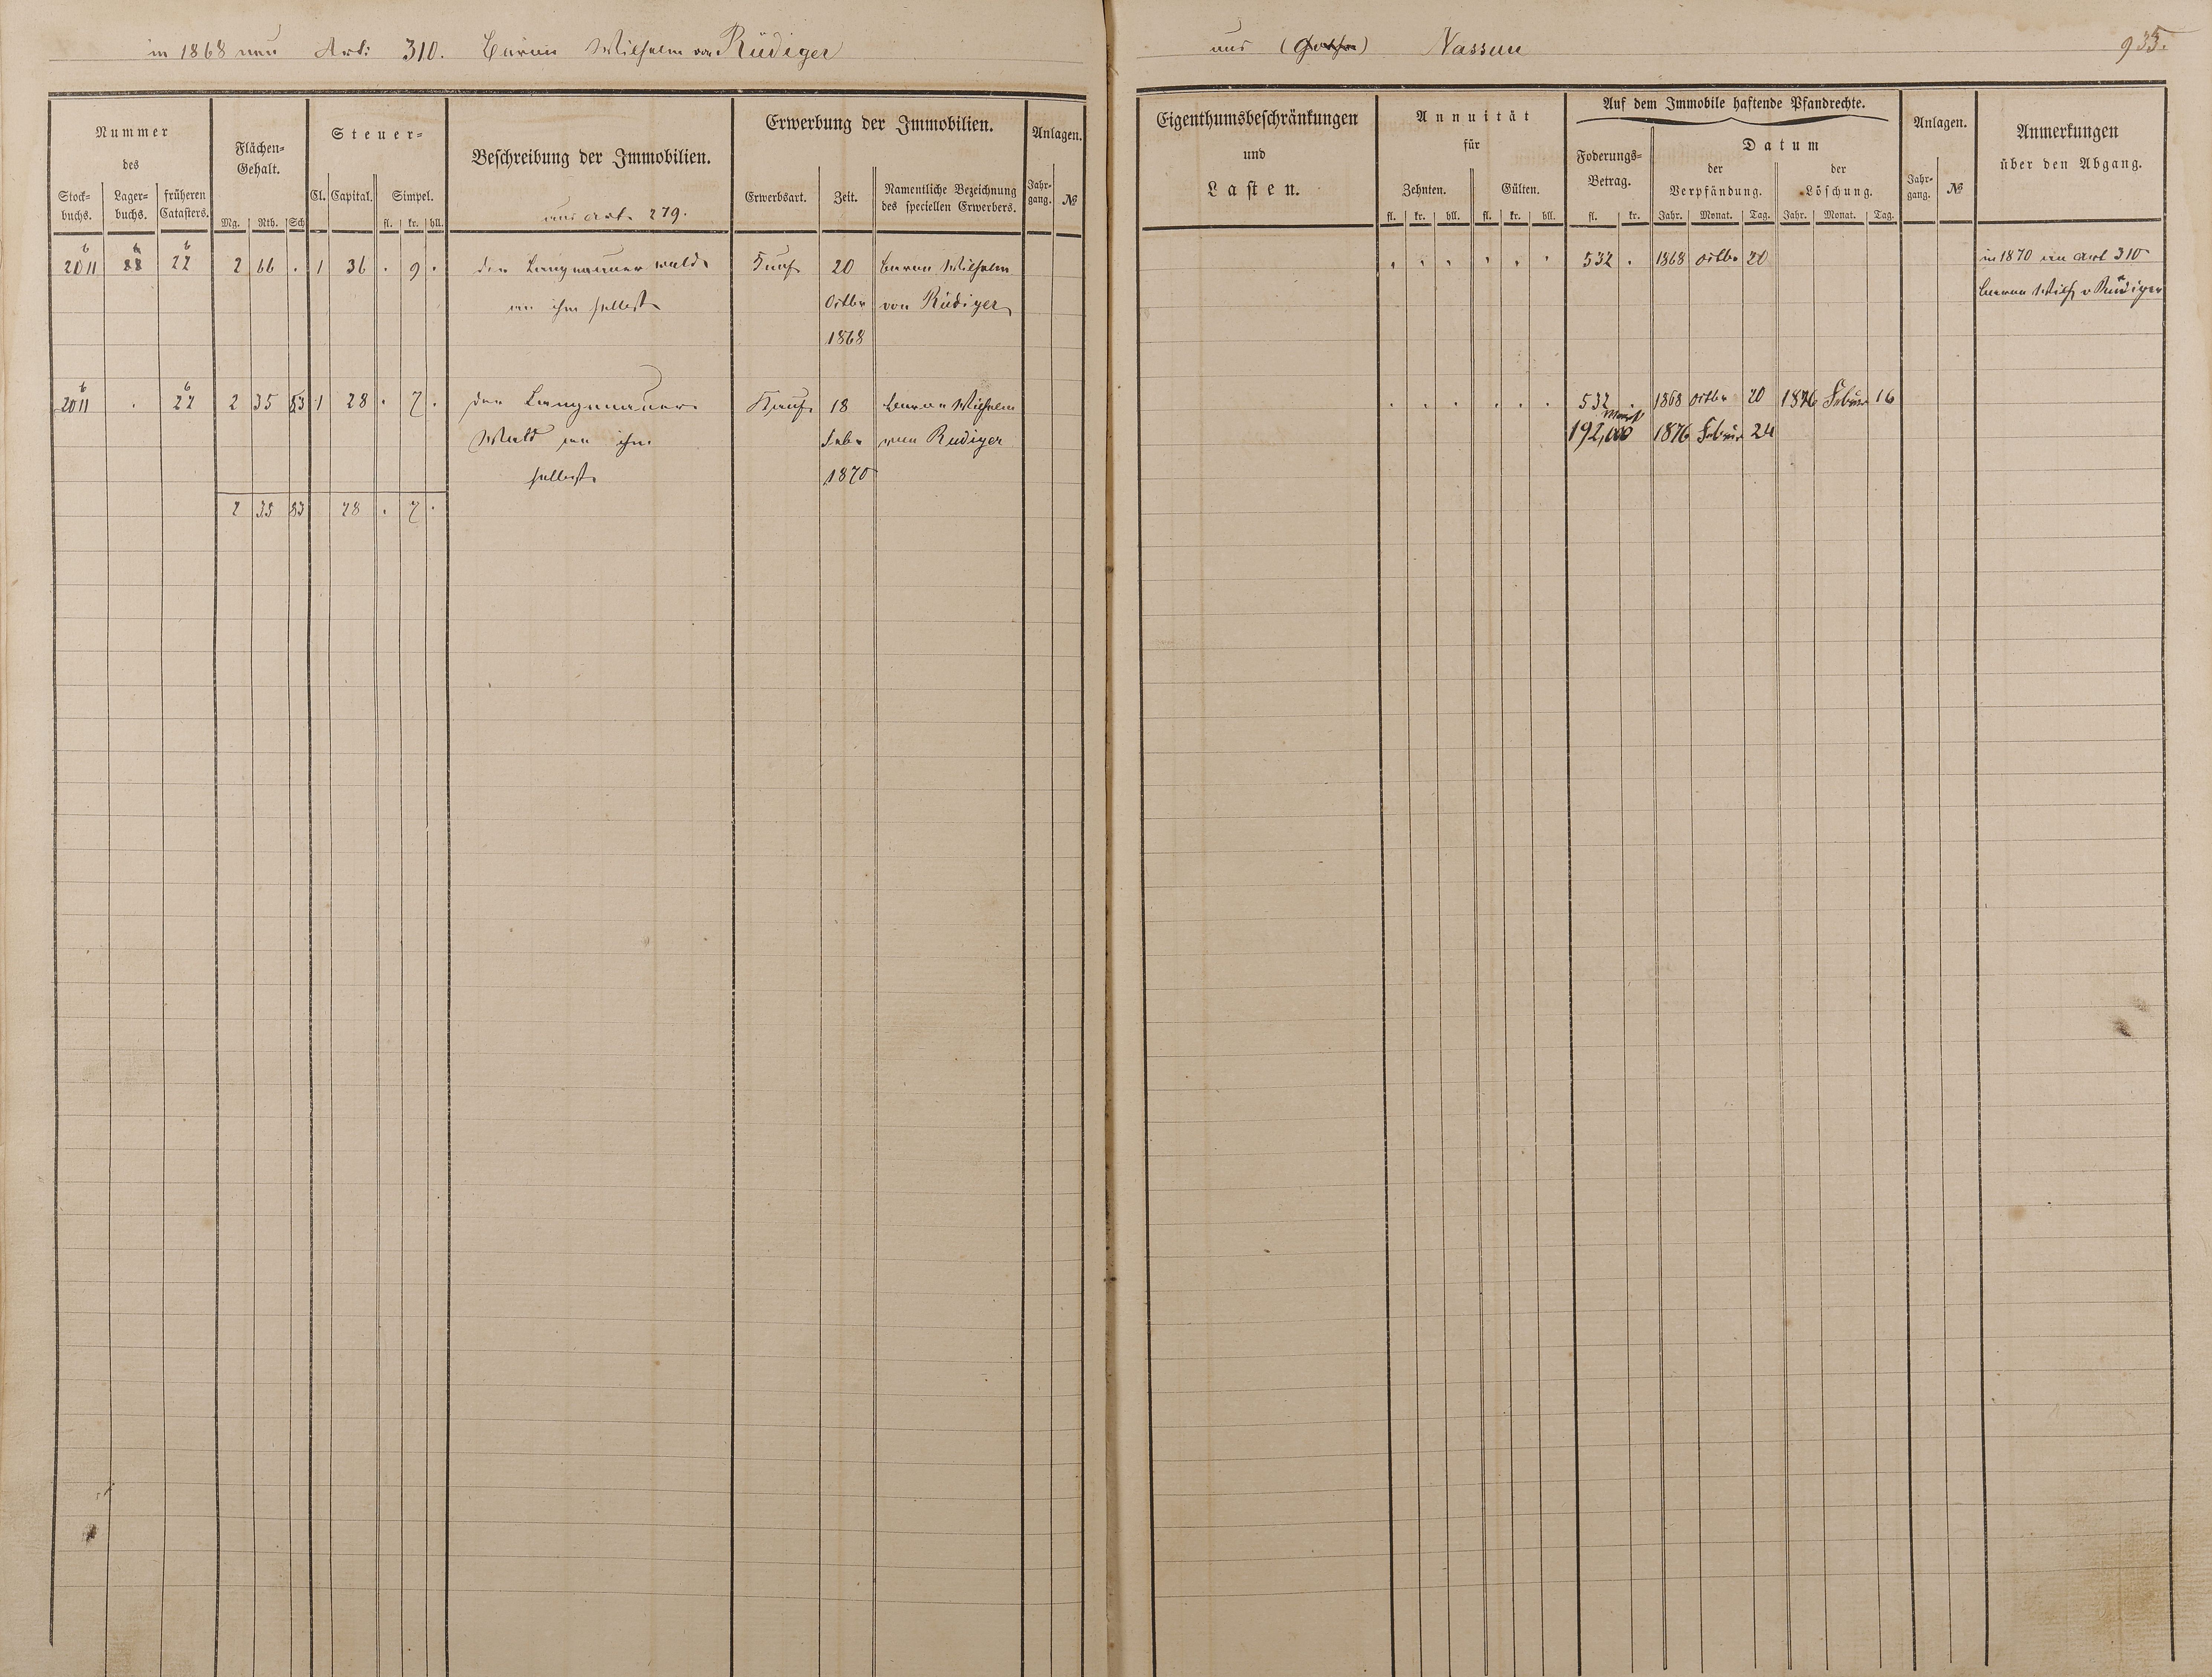 in 1868 neu Art: 310. Baron Wilhelm von Rüdiger
aus (Gotha) Nassau 935.
Nummer
des
Stock-
buchs.
Lager-
buchs.
früheren
Catasters.
Flächen-
Gehalt.
Mg. Rth. Sch
Steuer-
Cl. Capital. Simpel.
fl. kr. hll.
Beschreibung der Immobilien.
aus Art. 279.
Erwerbung der Immobilien.
Erwerbsart. Zeit. Namentliche Bezeichnung
des speciellen Erwerbers.
Anlagen.
Jahr-
gang. №
Eigenthumsbeschränkungen
und
Lasten.
Annuität
für
Zehnten. Gülten.
fl. kr. hll. fl. kr. hll.
Auf dem Immobile haftende Pfandrechte.
Foderungs-
Betrag.
fl. kr.
Datum
der
Verpfändung.
der
Löschung.
Jahr. Monat. Tag. Jahr. Monat. Tag.
Anlagen.
Jahr-
gang. №
Anmerkungen
über den Abgang.
b b
2011 22 2 66 . 1 36 . 9 . Der Langenauer Wald Kauf 20 Baron Wilhelm
an ihm selbst Octbr von Rüdiger
1868
532 . 1868 Octbr 20
in 1870 an Art 310
Baron Wilh v Rüdiger
b b
2011 . 22 2 35 53 1 28 . 7 . Der Langenauer Kauf 18 Baron Wilhelm
Wald an ihm Febr von Rüdiger
selbst 1870
532 . 1868 Octbr 20 1876 Februar 16
Mark
192,000 1876 Februar 24
2 35 53 28 . 7 .